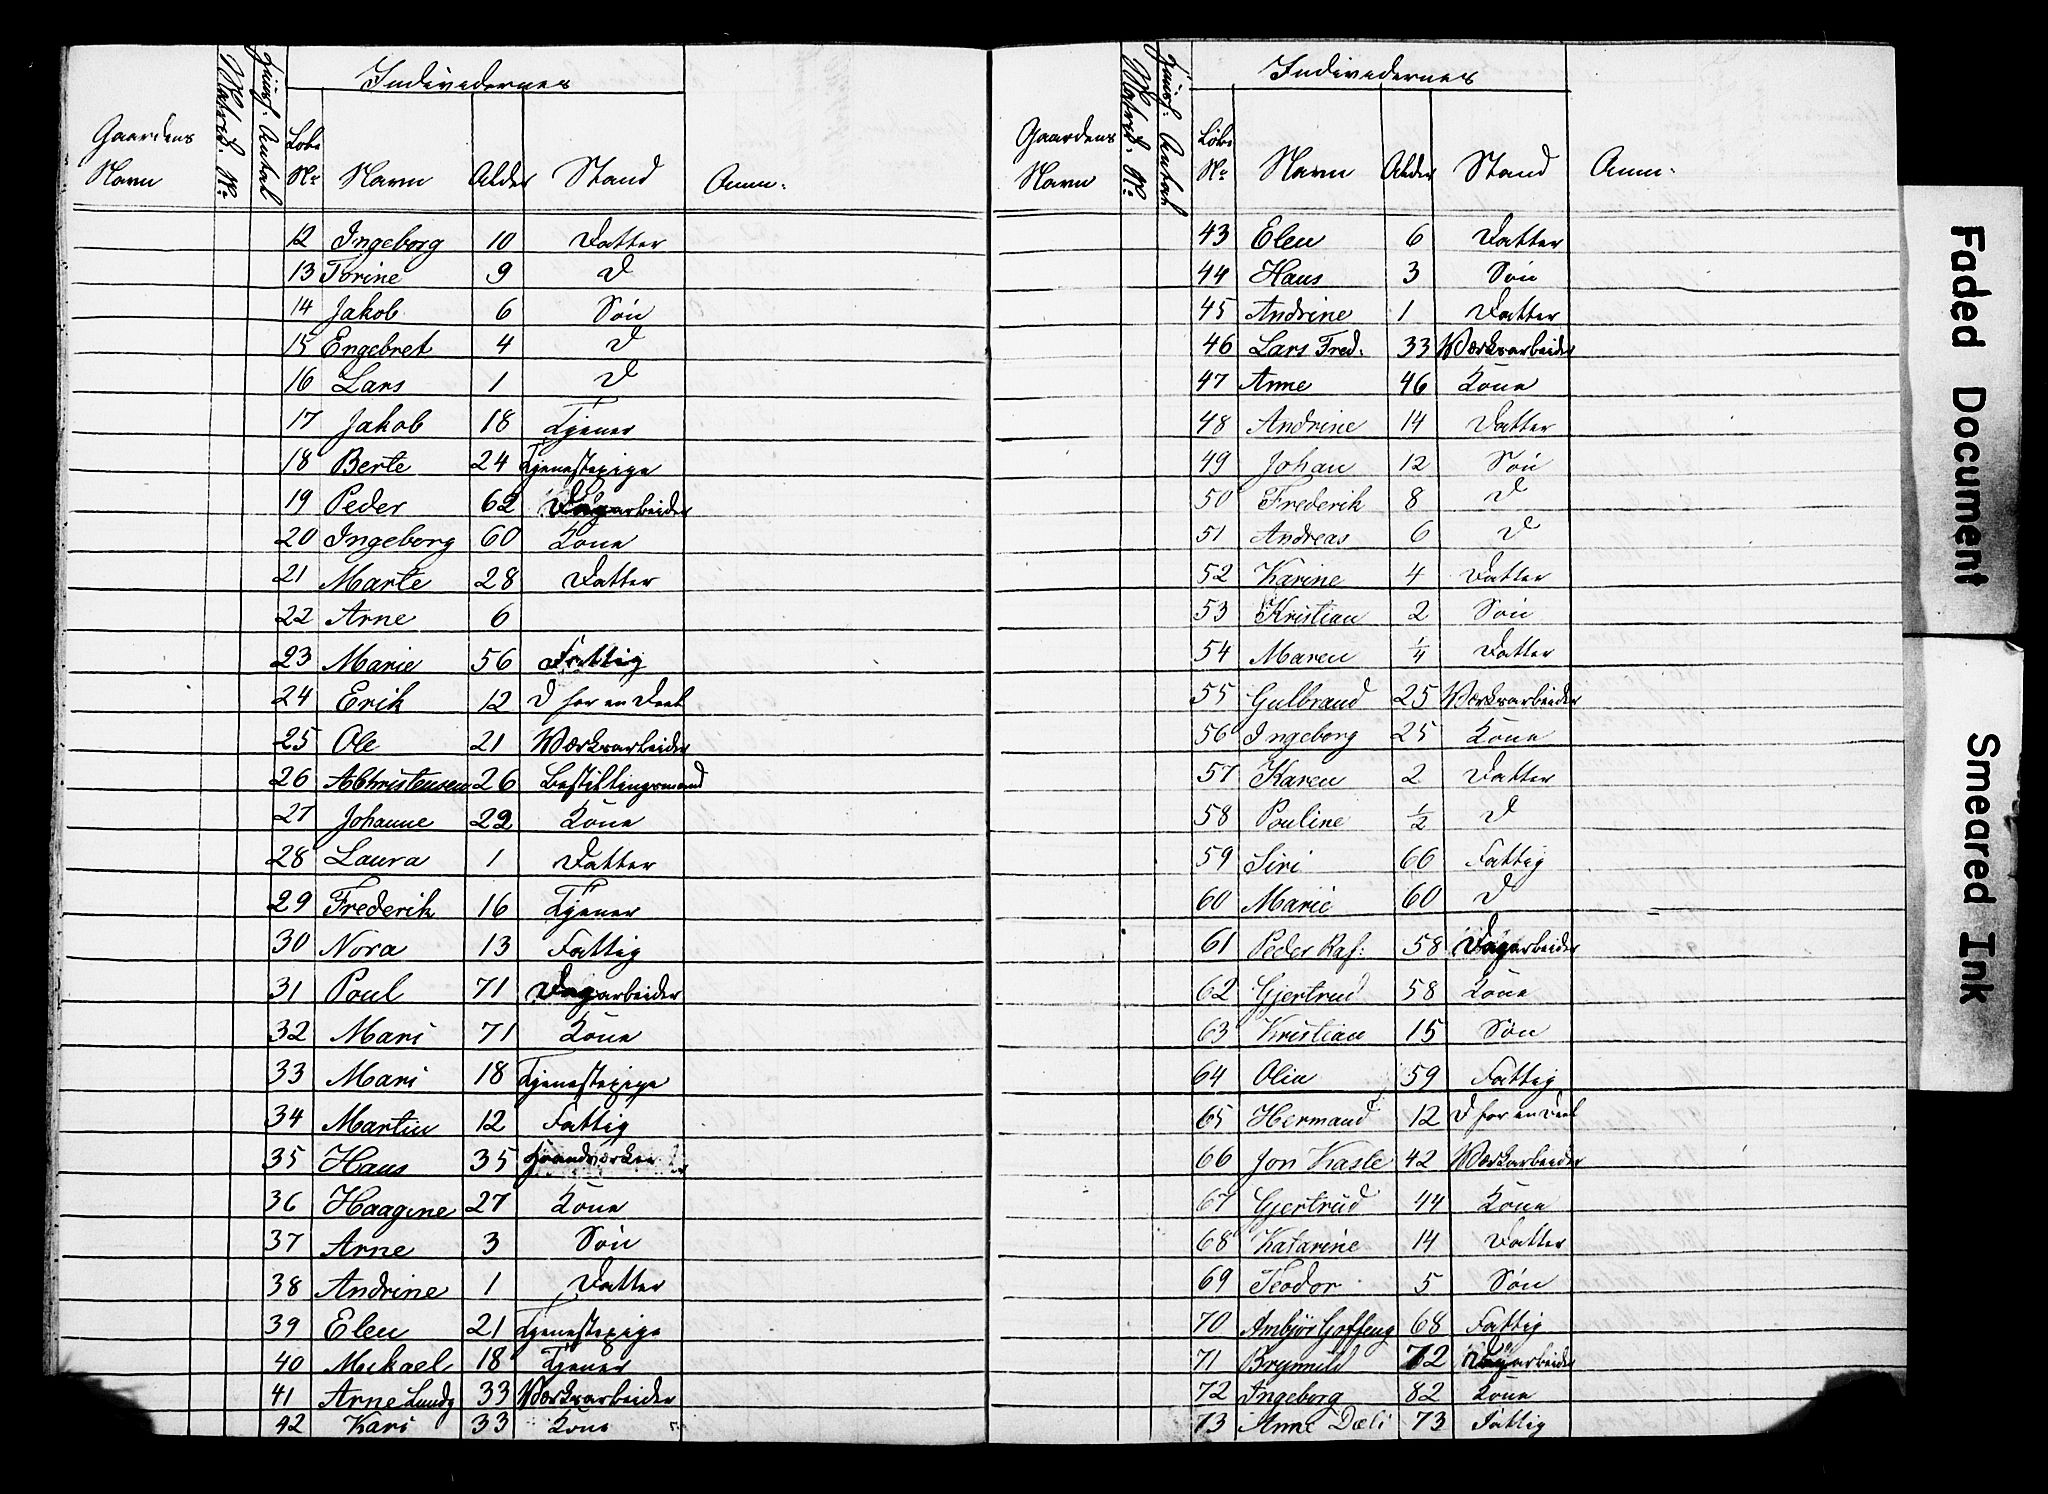 Individernes
Gaardens Navn Matrik. No. Huusf. Antal Løbe Nr. Navn Alder Stand Anm:
12 Ingeborg 10 Datter
13 Torine 9 D
14 Jakob 6 Søn
15 Engebret 4 D
16 Lars 1 D
17 Jakob 18 Tjener
18 Berte 24 Tjenestepige
19 Peder 62 Dagarbeider
20 Ingeborg 60 Kone
21 Marte 28 Datter
22 Arne 6
23 Marie 56 Fattig
24 Erik 12 D for en Deel
25 Ole 21 Værksarbeider
26 A Christensen 26 Bestillingsmand
27 Johanne 22 Kone
28 Laura 1 Datter
29 Frederik 16 Tjener
30 Nora 13 Fattig
31 Poul 71 Dagarbeider
32 Mari 71 Kone
33 Mari 18 Tjenestepige
34 Martin 12 Fattig
35 Hans 35 Haandværker
36 Haagine 27 Kone
37 Arne 3 Søn
38 Andrine 1 Datter
39 Elen 21 Tjenestepige
40 Mikael 18 Tjener
41 Arne Lundq 33 Værksarbeider
42 Kari 33 Kone
Individernes
Gaardens Navn Matrik. No. Huusf. Antal Løbe Nr. Navn Alder Stand Anm:
43 Elen 6 Datter
44 Hans 3 Søn
45 Andrine 1 Datter
46 Lars Fred. 33 Værksarbeider
47 Anne 46 Kone
48 Andrine 14 Datter
49 Johan 12 Søn
50 Frederik 8 D
51 Andreas 6 D
52 Karine 4 Datter
53 Kristian 2 Søn
54 Maren ¼ Datter
55 Gulbrand 25 Værksarbeider
56 Ingeborg 25 Kone
57 Karen 2 Datter
58 Pouline ½ D
59 Siri 66 Fattig
60 Marie 60 D
61 Peder Raf: 58 Dagarbeider
62 Gjertrud 58 Kone
63 Kristian 15 Søn
64 Olia 59 Fattig
65 Hermand 12 D for en Deel
66 Jon Kasle 42 Værksarbeider
67 Gjertrud 44 Kone
68 Katarine 14 Datter
69 Teodor 5 Søn
70 Ambjør Goffeng 68 Fattig
71 Brynnild 72 Dagarbeider
72 Ingeborg 82 Kone
73 Anne Dæli 73 Fattig
Faded Document
Smeared Ink